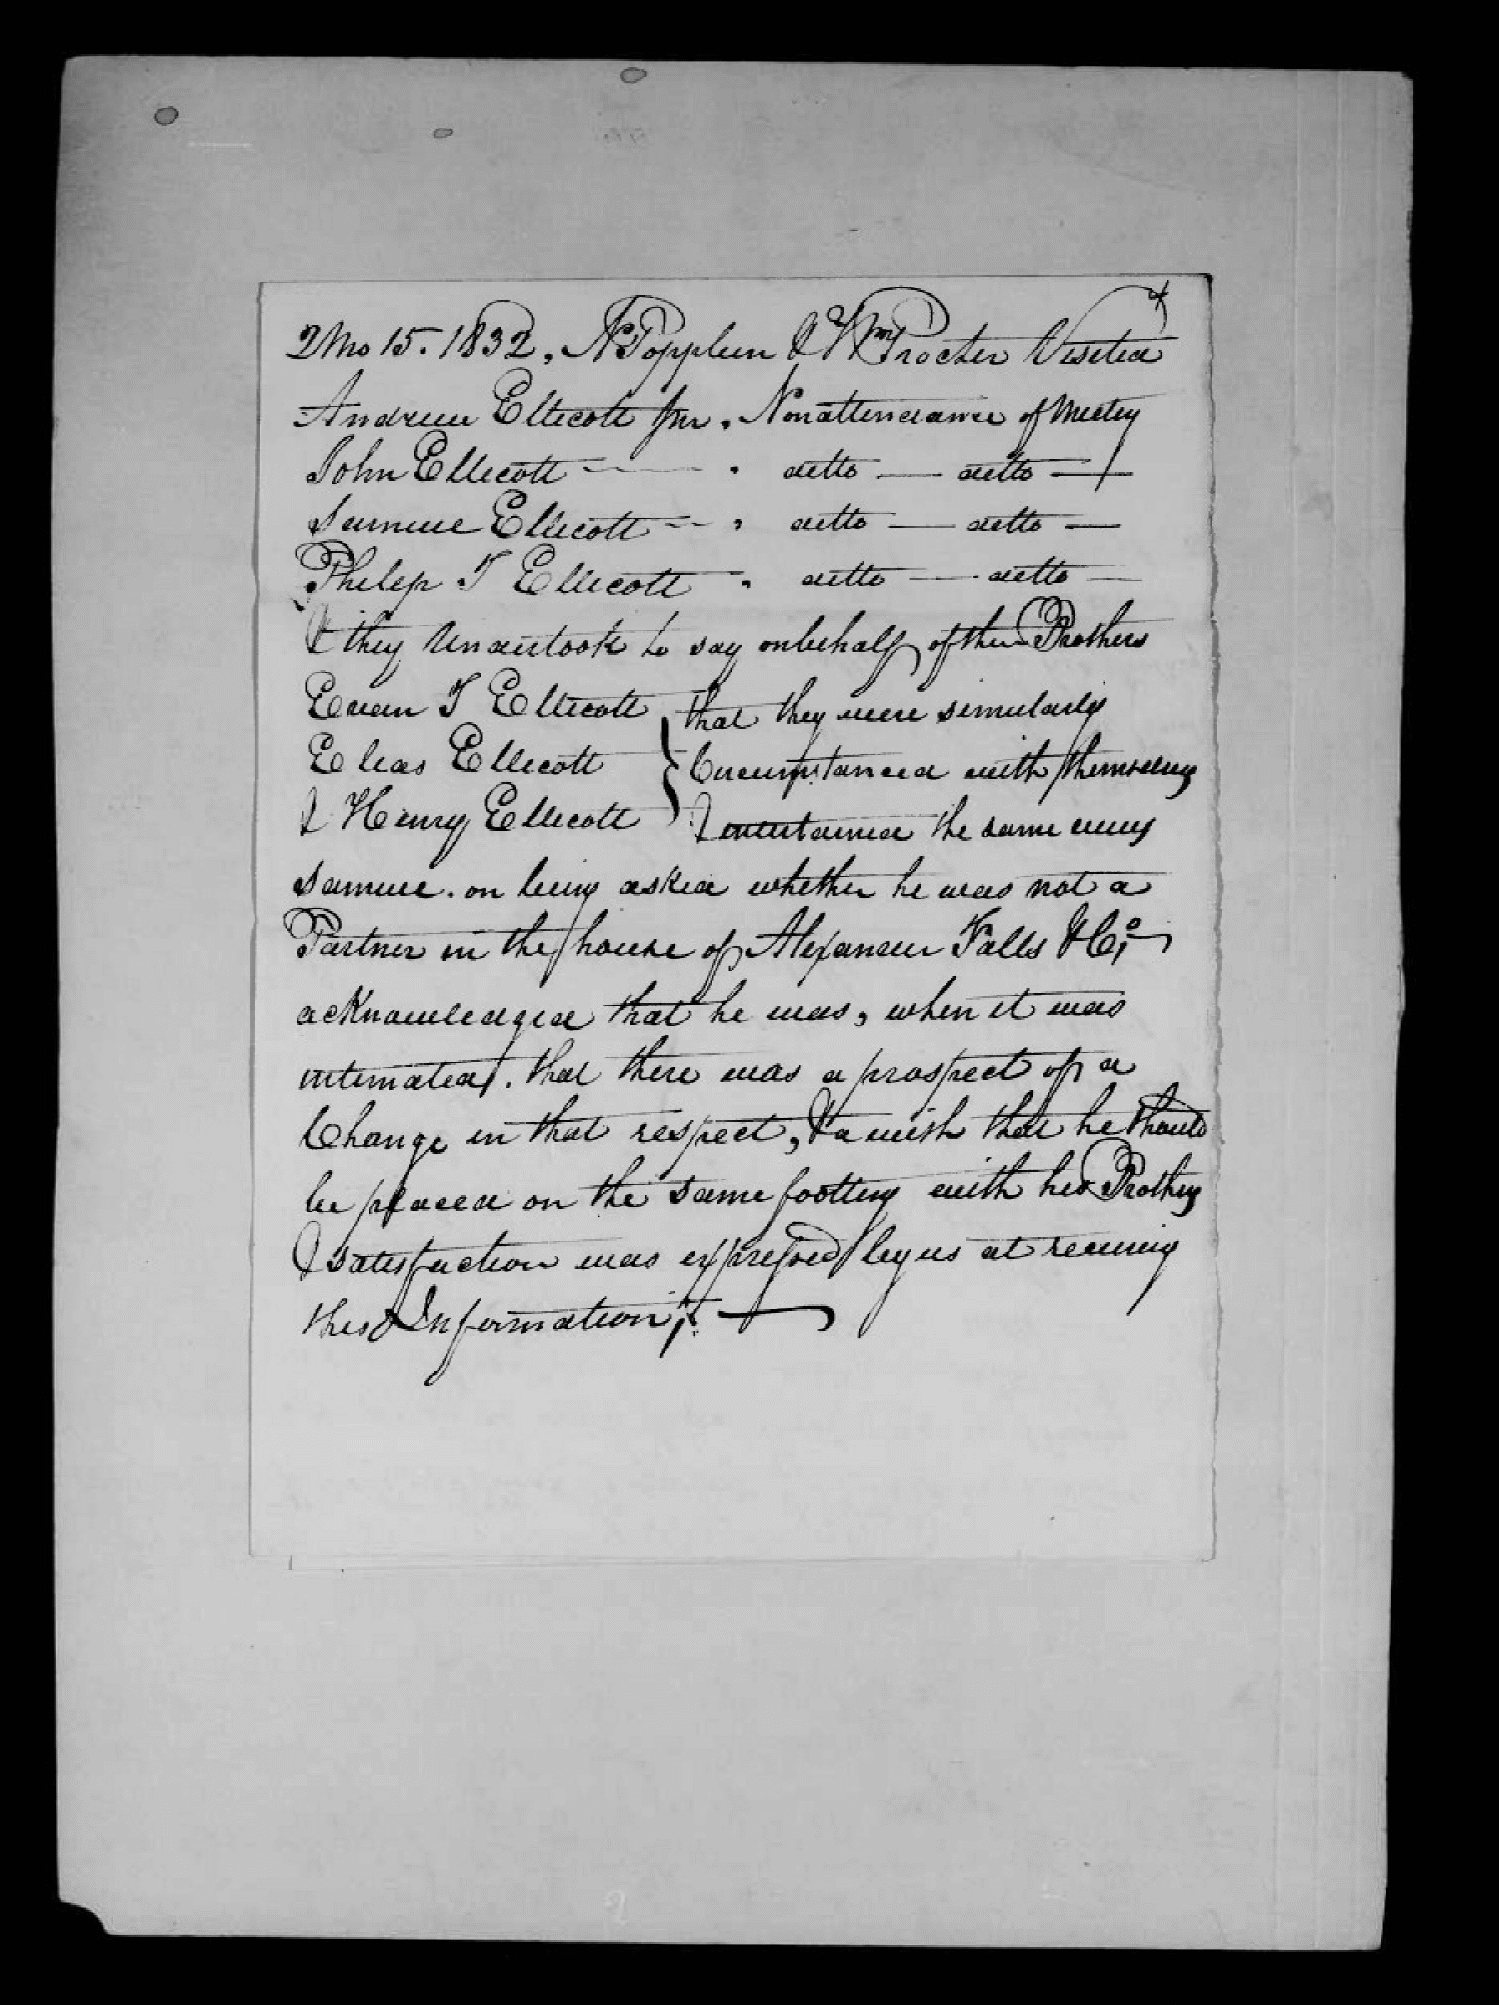 2 Mo 15. 1832, N Popplein & Wm Procter Visited
Andrew Ellicott Jnr. Nonattendance of Meetg
John Ellicott - - - . ditto — ditto —
Samuel Ellicott - - , ditto — ditto —
Philip T Ellicott - . ditto — ditto —
& they Undertook to say on behalf of their Brothers
Evan T Ellicott } that they were similarly
Elias Ellicott } Circumstanced with themselves
& Henry Ellicott } & entertained the same views
Samuel. on being asked whether he was not a
Partner in the house of Alexander Falls & Co,
acknowledged that he was, when it was
intimated. that there was a prospect of a
Change in that respect, & a wish that he should
be placed on the same footing with his Brothers
& satisfaction was expressed by us at receiving
this Information;. —